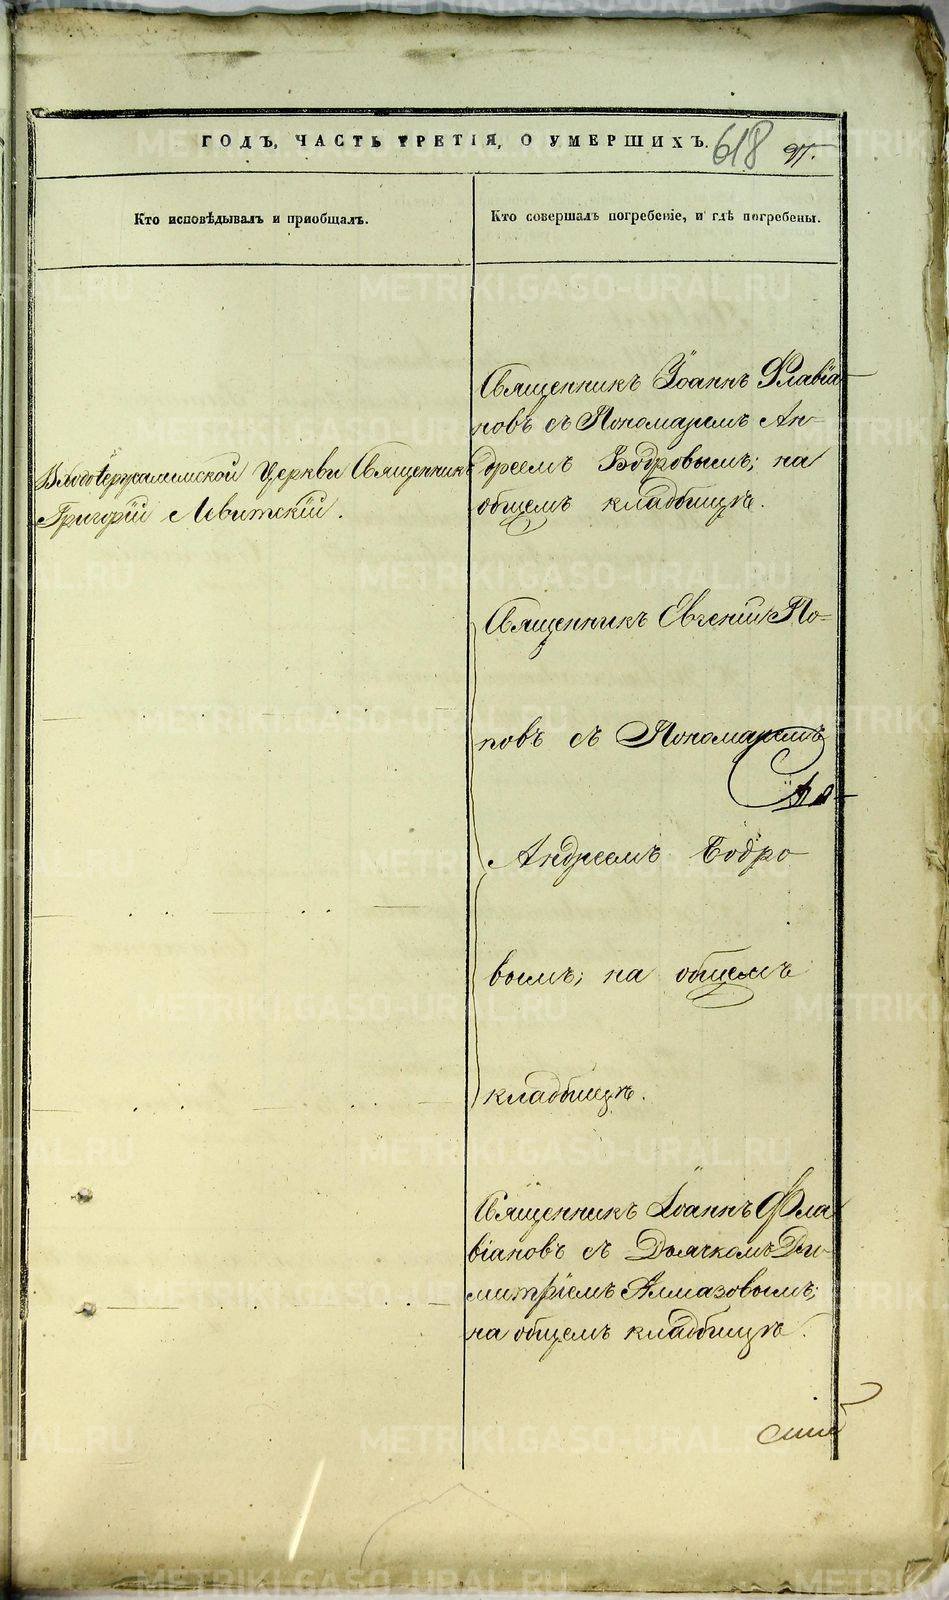 ГОДЪ, ЧАСТЬ ТРЕТІЯ, О УМЕРШИХЪ. 618 97.
Кто исповѣдывалъ и приобщалъ.
Кто совершалъ погребеніе, и гдѣ погребены.
Церкви Священникъ
Григорій Левитскій.
Священникъ Іоаннъ Флавіа
новъ съ Пономаремъ Ан-
дреемъ Бодровымъ; на
общемъ кладбищѣ.
Священникъ Евгеній По-
повъ съ Пономаремъ
Андреемъ Бодро
вымъ; на общемъ
кладбищѣ.
Священникъ Іоаннъ Фла
віановъ съ Дьячкомъ Ди-
митріемъ Алмазовымъ;
на общемъ кладбищѣ.
METRIKI.GASO-URAL.RU